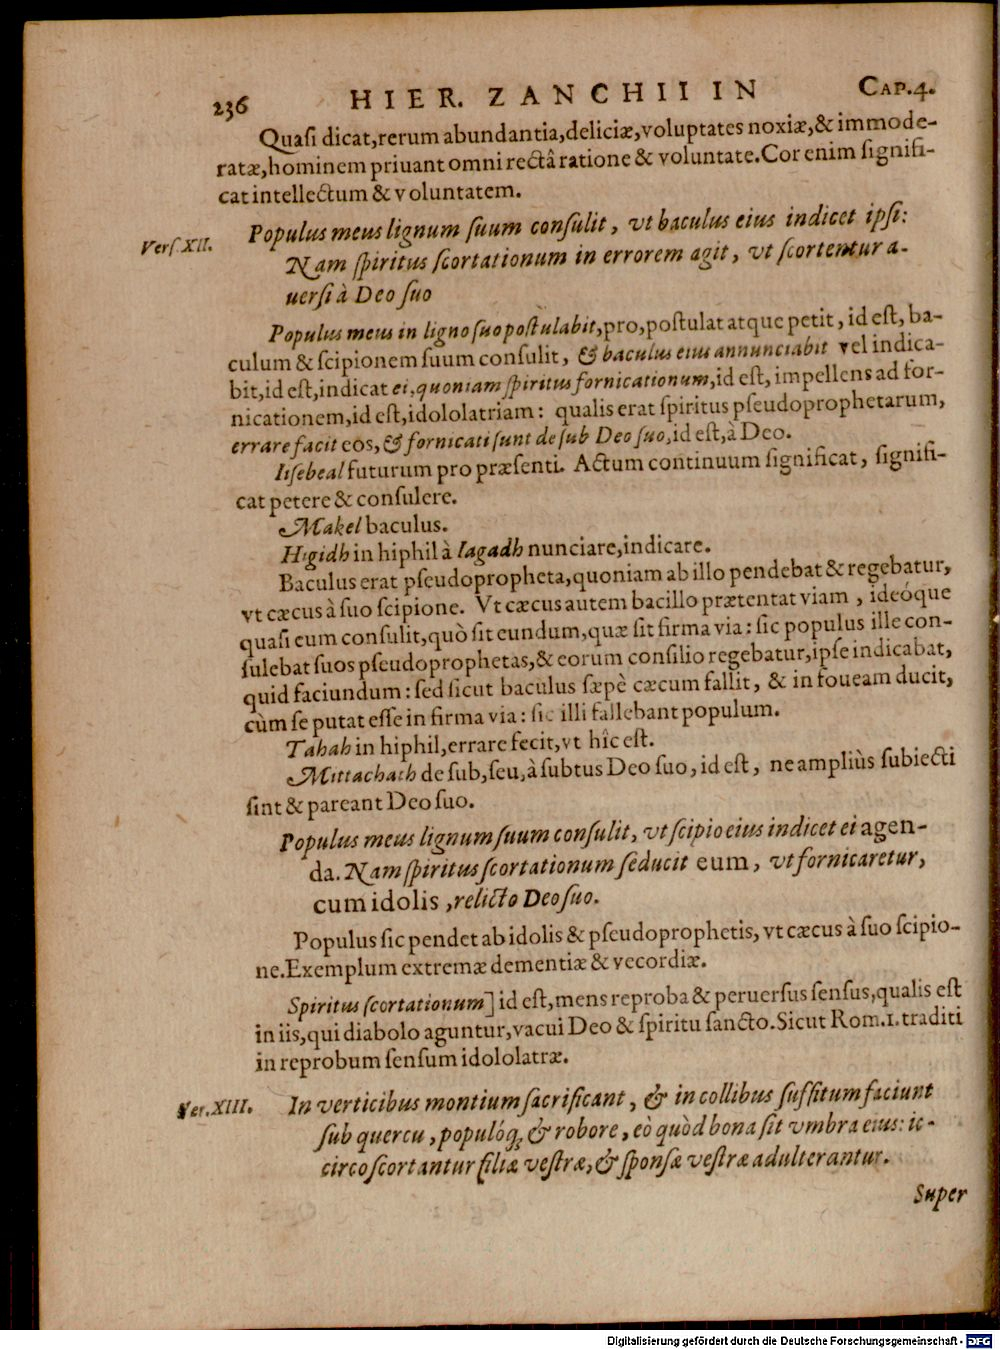 236 HIER. ZANCHII IN CAP.4.
Quaſi dicat,rerum abundantia,deliciæ,voluptates noxiæ,& immode-
ratæ,hominem priuant omni rectâ ratione & voluntate.Cor enim ſignifi-
cat intellectum & voluntatem.
Verſ.XII. Populus meus lignum ſuum conſulit, vt baculus eius indicet ipſi:
Nam ſpiritus ſcortationum in errorem agit, vt ſcortentur a-
uerſi à Deo ſuo
Populus meus in ligno ſuo poſtulabit,pro,poſtulat atque petit, id eſt, ba-
culum & ſcipionem ſuum conſulit, & baculus eius annunciabit vel indica-
bit,id eſt,indicat ei,quoniam ſpiritus fornicationum,id eſt, impellens ad for-
nicationem,id eſt,idololatriam: qualis erat ſpiritus pſeudoprophetarum,
errare facit eos,& fornicati ſunt de ſub Deo ſuo,id eſt,à Deo.
Iiſebeal futurum pro præſenti. Actum continuum ſignificat, ſignifi-
cat petere & conſulere.
Makel baculus.
Higidh in hiphil à Iagadh nunciare,indicare.
Baculus erat pſeudopropheta,quoniam ab illo pendebat & regebatur,
vt cæcus à ſuo ſcipione. Vt cæcus autem bacillo prætentat viam, ideóque
quaſi eum conſulit,quò ſit eundum,quæ ſit firma via: ſic populus ille con-
ſulebat ſuos pſeudoprophetas,& eorum conſilio regebatur,ipſe indicabat,
quid faciundum: ſed ſicut baculus ſæpè cæcum fallit, & in foueam ducit,
cùm ſe putat eſſe in firma via: ſic illi fallebant populum.
Tahah in hiphil,errare fecit,vt hîc eſt.
Mittachath de ſub,ſeu,à ſubtus Deo ſuo, id eſt, ne ampliùs ſubiecti
ſint & pareant Deo ſuo.
Populus meus lignum ſuum conſulit, vt ſcipio eius indicet ei agen-
da. Nam ſpiritus ſcortationum ſeducit eum, vt fornicaretur,
cum idolis ,relicto Deo ſuo.
Populus ſic pendet ab idolis & pſeudoprophetis, vt cæcus à ſuo ſcipio-
ne.Exemplum extremæ dementiæ & vecordiæ.
Spiritus ſcortationum] id eſt,mens reproba & peruerſus ſenſus,qualis eſt
in iis,qui diabolo aguntur,vacui Deo & ſpiritu ſancto.Sicut Rom.1. traditi
in reprobum ſenſum idololatræ.
Ver.XIII. In verticibus montium ſacrificant, & in collibus ſuffitum faciunt
ſub quercu, populóq; & robore, eò quòd bona ſit vmbra eius: ic-
circo ſcortantur filiæ veſtræ,& ſponſæ veſtræ adulterantur.
Super
Digitalisierung gefördert durch die Deutsche Forschungsgemeinschaft - DFG